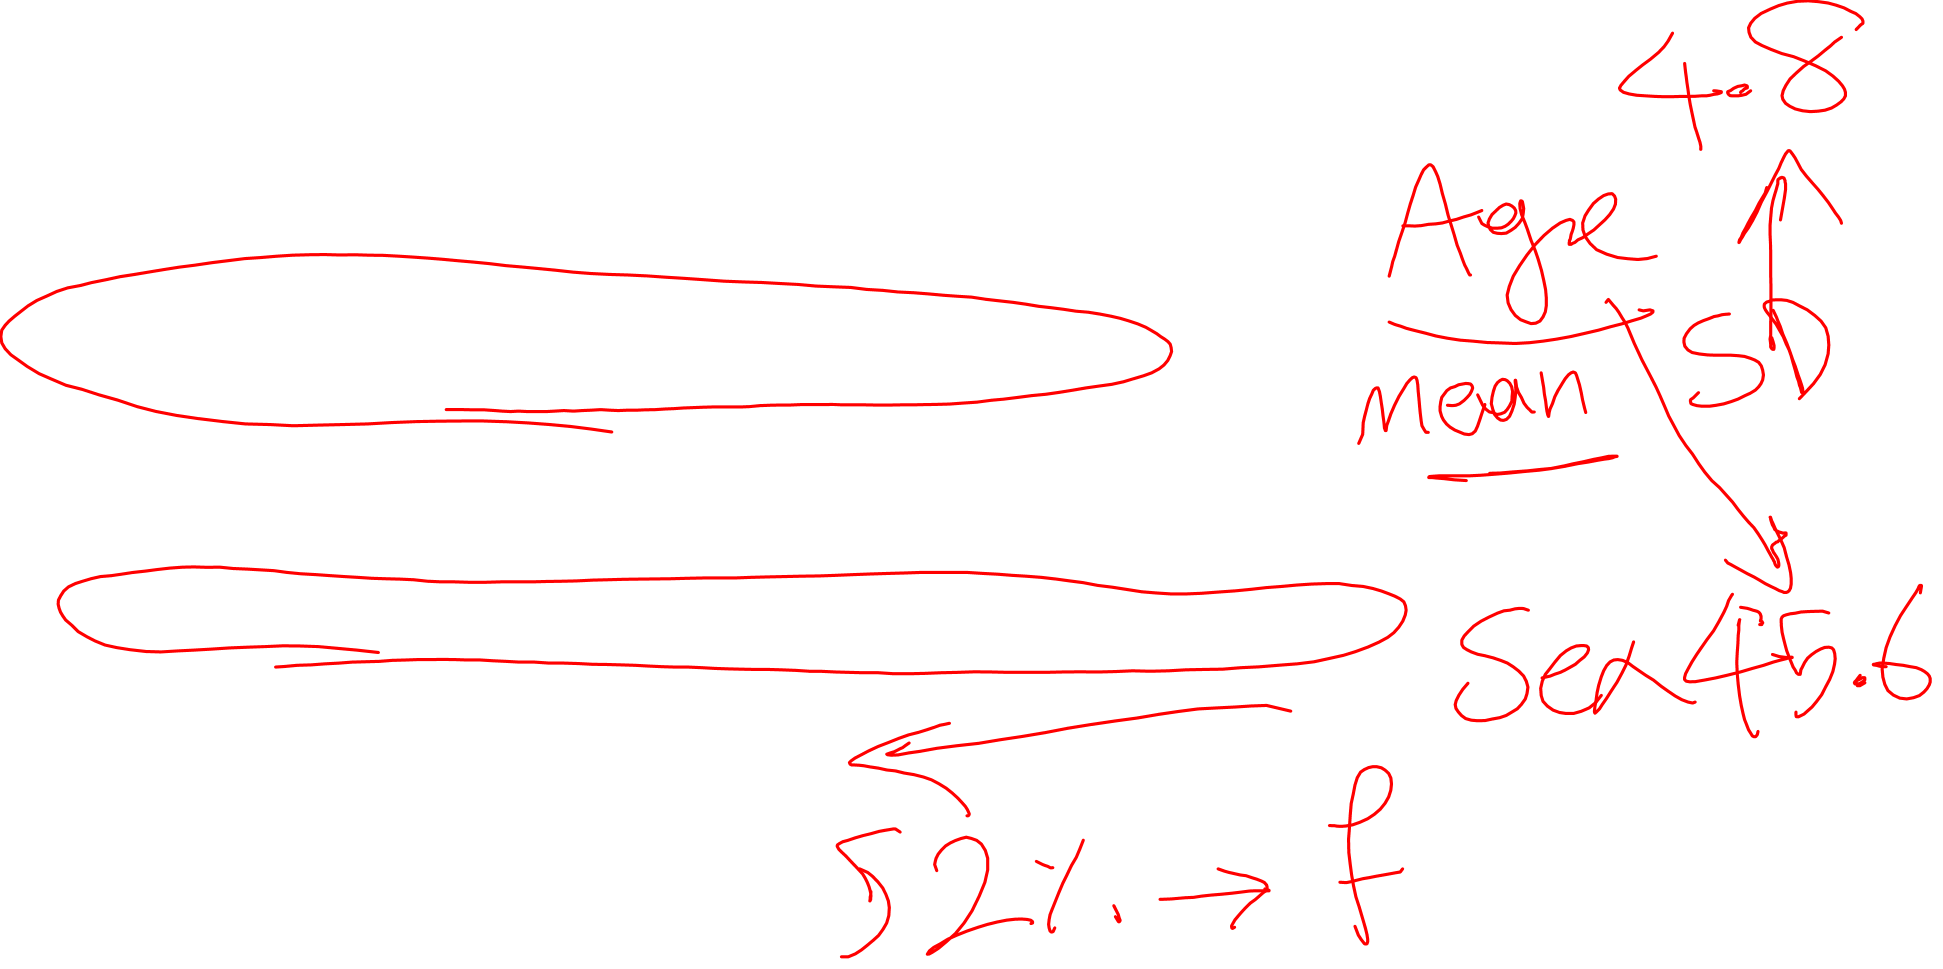 4.8
Age
SD
mean
Sex 45.6
52% → f